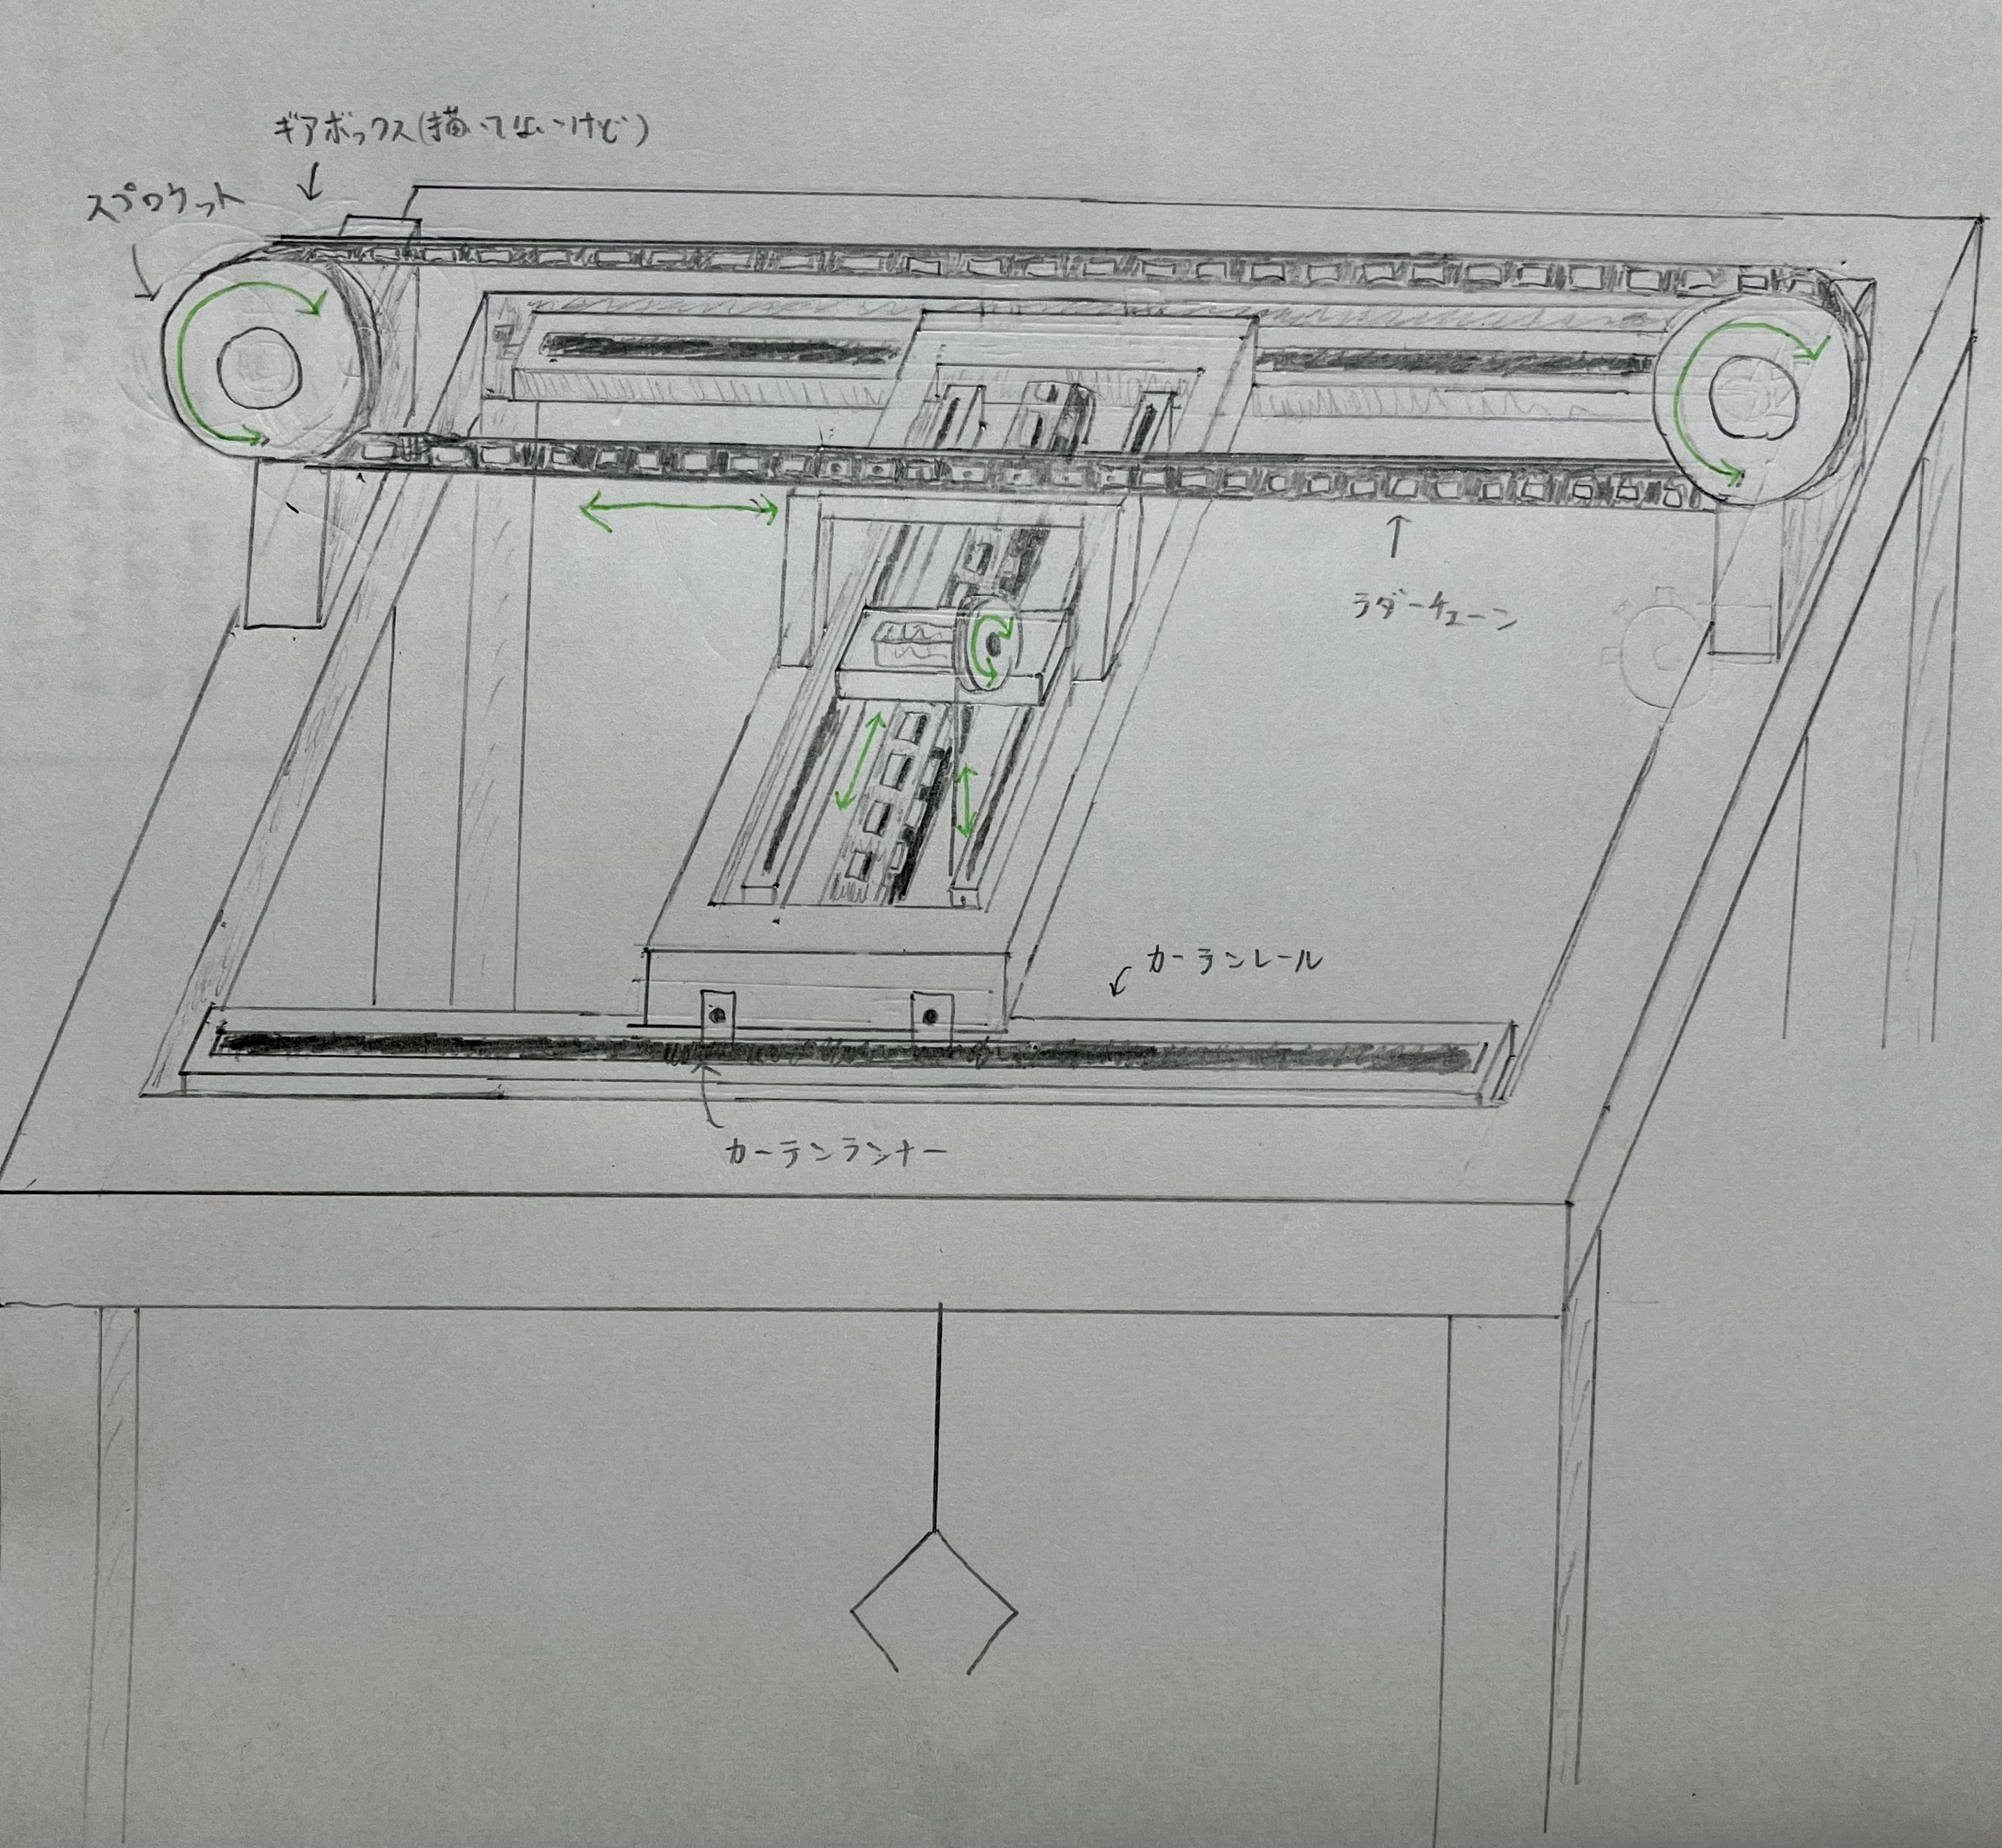 ギアボックス(描いてないけど)
スプロケット
ラダーチェーン
カーテンレール
カーテンランナー